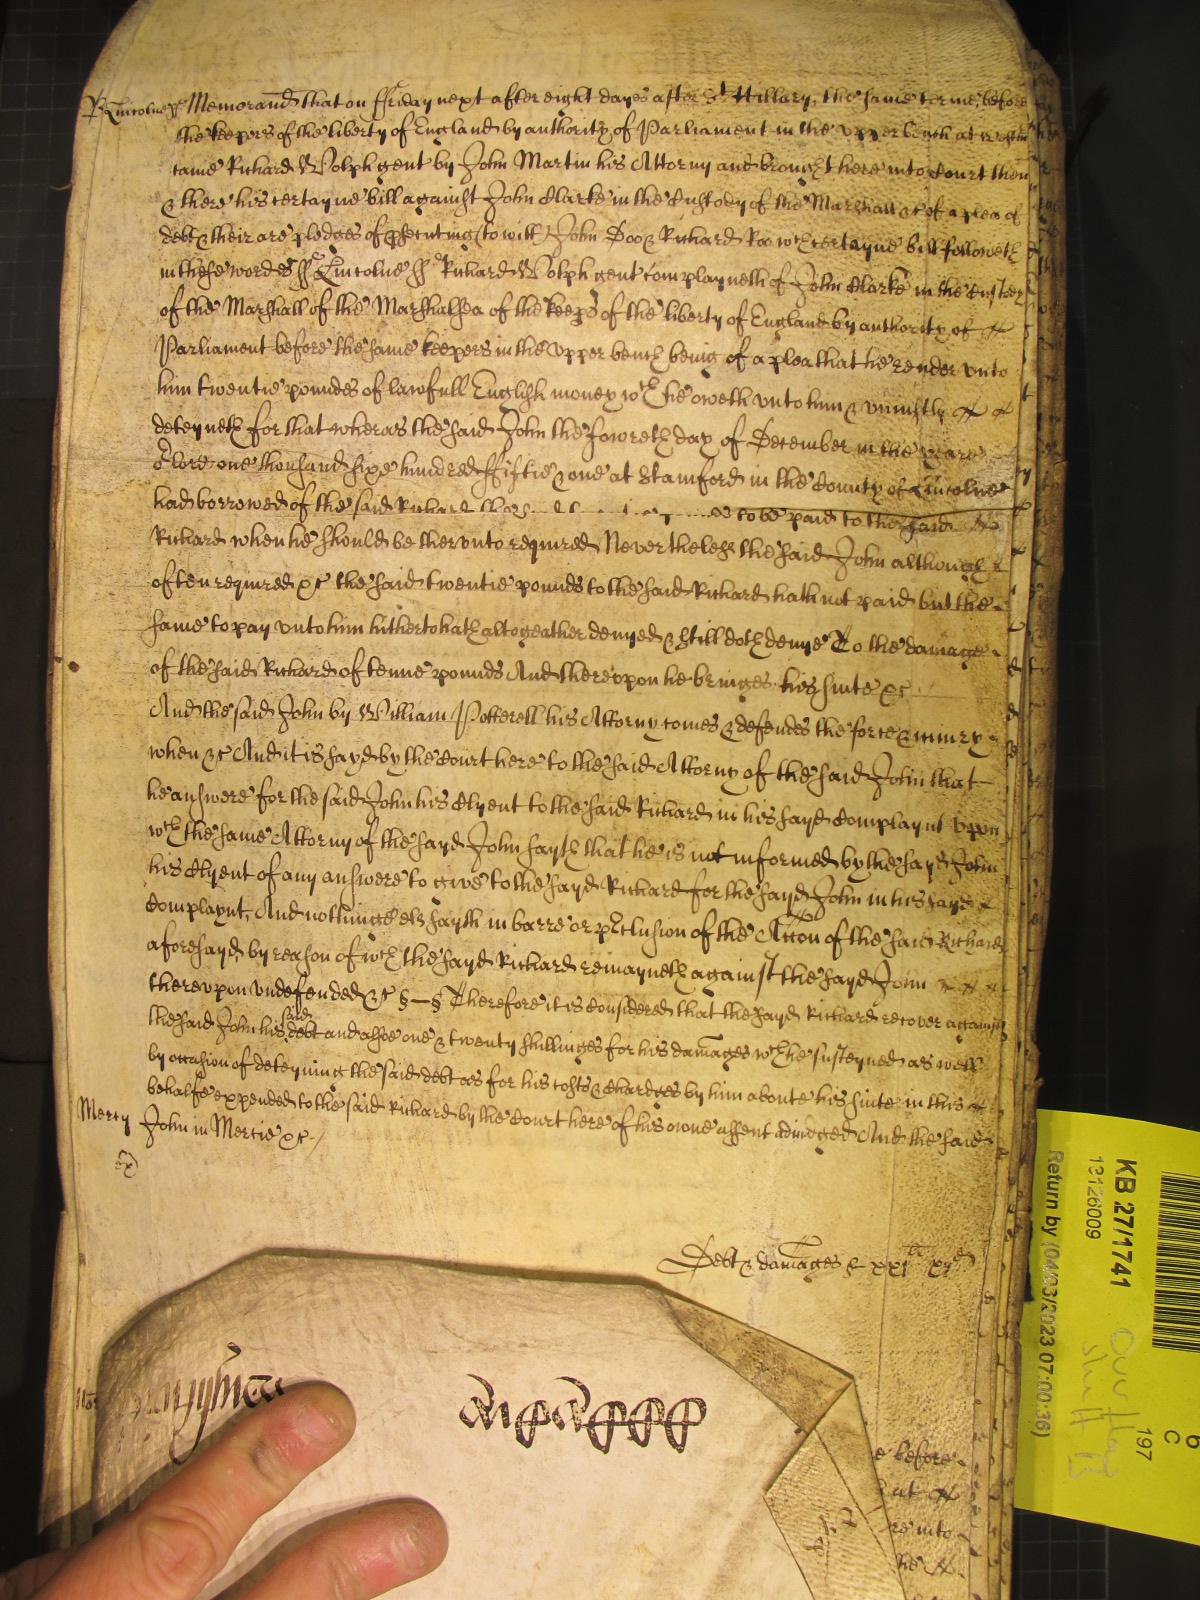 Lincolne ss Memorand that on ffriday next after eight dayes after St Hillary, the same terme before
the keepers of the liberty of England by authority of Parliament in the upper bench at
came Richard Wolph gent by John Martin his Attorny and brought here into Court then
& there his certayne bill against John Clarke in the Custody of the Marshall &c of a plea of
debt & their are pledges of psecuting (to witt) John Doo & Richard Roo wch certayne bill followeth
in these wordes ss Lincolne ss Richard Wolph gent complayneth of John Clarke in the Custody
of the Marshall of the Marshalsea of the keeps of the liberty of England by authority of
Parliament before the same keepers in the upper bench being of a plea that he render unto
him twentie poundes of lawfull English money wch he oweth unto him & uniustly
deteyneth for that wheras the said John the fowreth day of December in the yeare
lord one thousand sixe hundred ffiftie & one at Stamford in the County of Lincolne
had borrowed of the said Richard to be paid to the said
Richard when he should be therunto required Nevertheless the said John although
often required &c the said twentie pounds to the said Richard hath not paid but the
same to pay unto him hitherto hath altogeather denyed & still doth denye To the damage
of the said Richard of tenne pounds And thereupon he bringes his suite &c
And the said John by William Potterell his Attorny comes & defendes the force & iniury
when &c And it is sayd by the Court here to the said Attorny of the said John that
he answere for the said John his Clyent to the said Richard in his sayd Complaynt uppon
wch the same Attorny of the sayd John sayth that he is not informed by the sayd John
his Clyent of any answere to give to the sayd Richard for the sayd John in his sayd
Complaynt, And nothinge els sayth in barre or pclusion of the Accon of the said Richard
aforesayd by reason of wch the sayd Richard remayneth against the sayd John
thereupon undefended &c §—§ Therefore it is considered that the sayd Richard recover against
the said John his said debt and allsoe one & twenty shillinges for his damages wch he susteyned as well
by occasion of deteyning the said debt as for his costs & chardges by him aboute his suite in this
behalfe expended to the said Richard by the Court here of his owne assent adiudged And the said
Mercy John in Mercie &c
Debt & damages £ xxi li xij d
e before
ut
re into
he
KB 27/1741
13126009
Return by (04/03/2023 07:00:36)
6
C
197